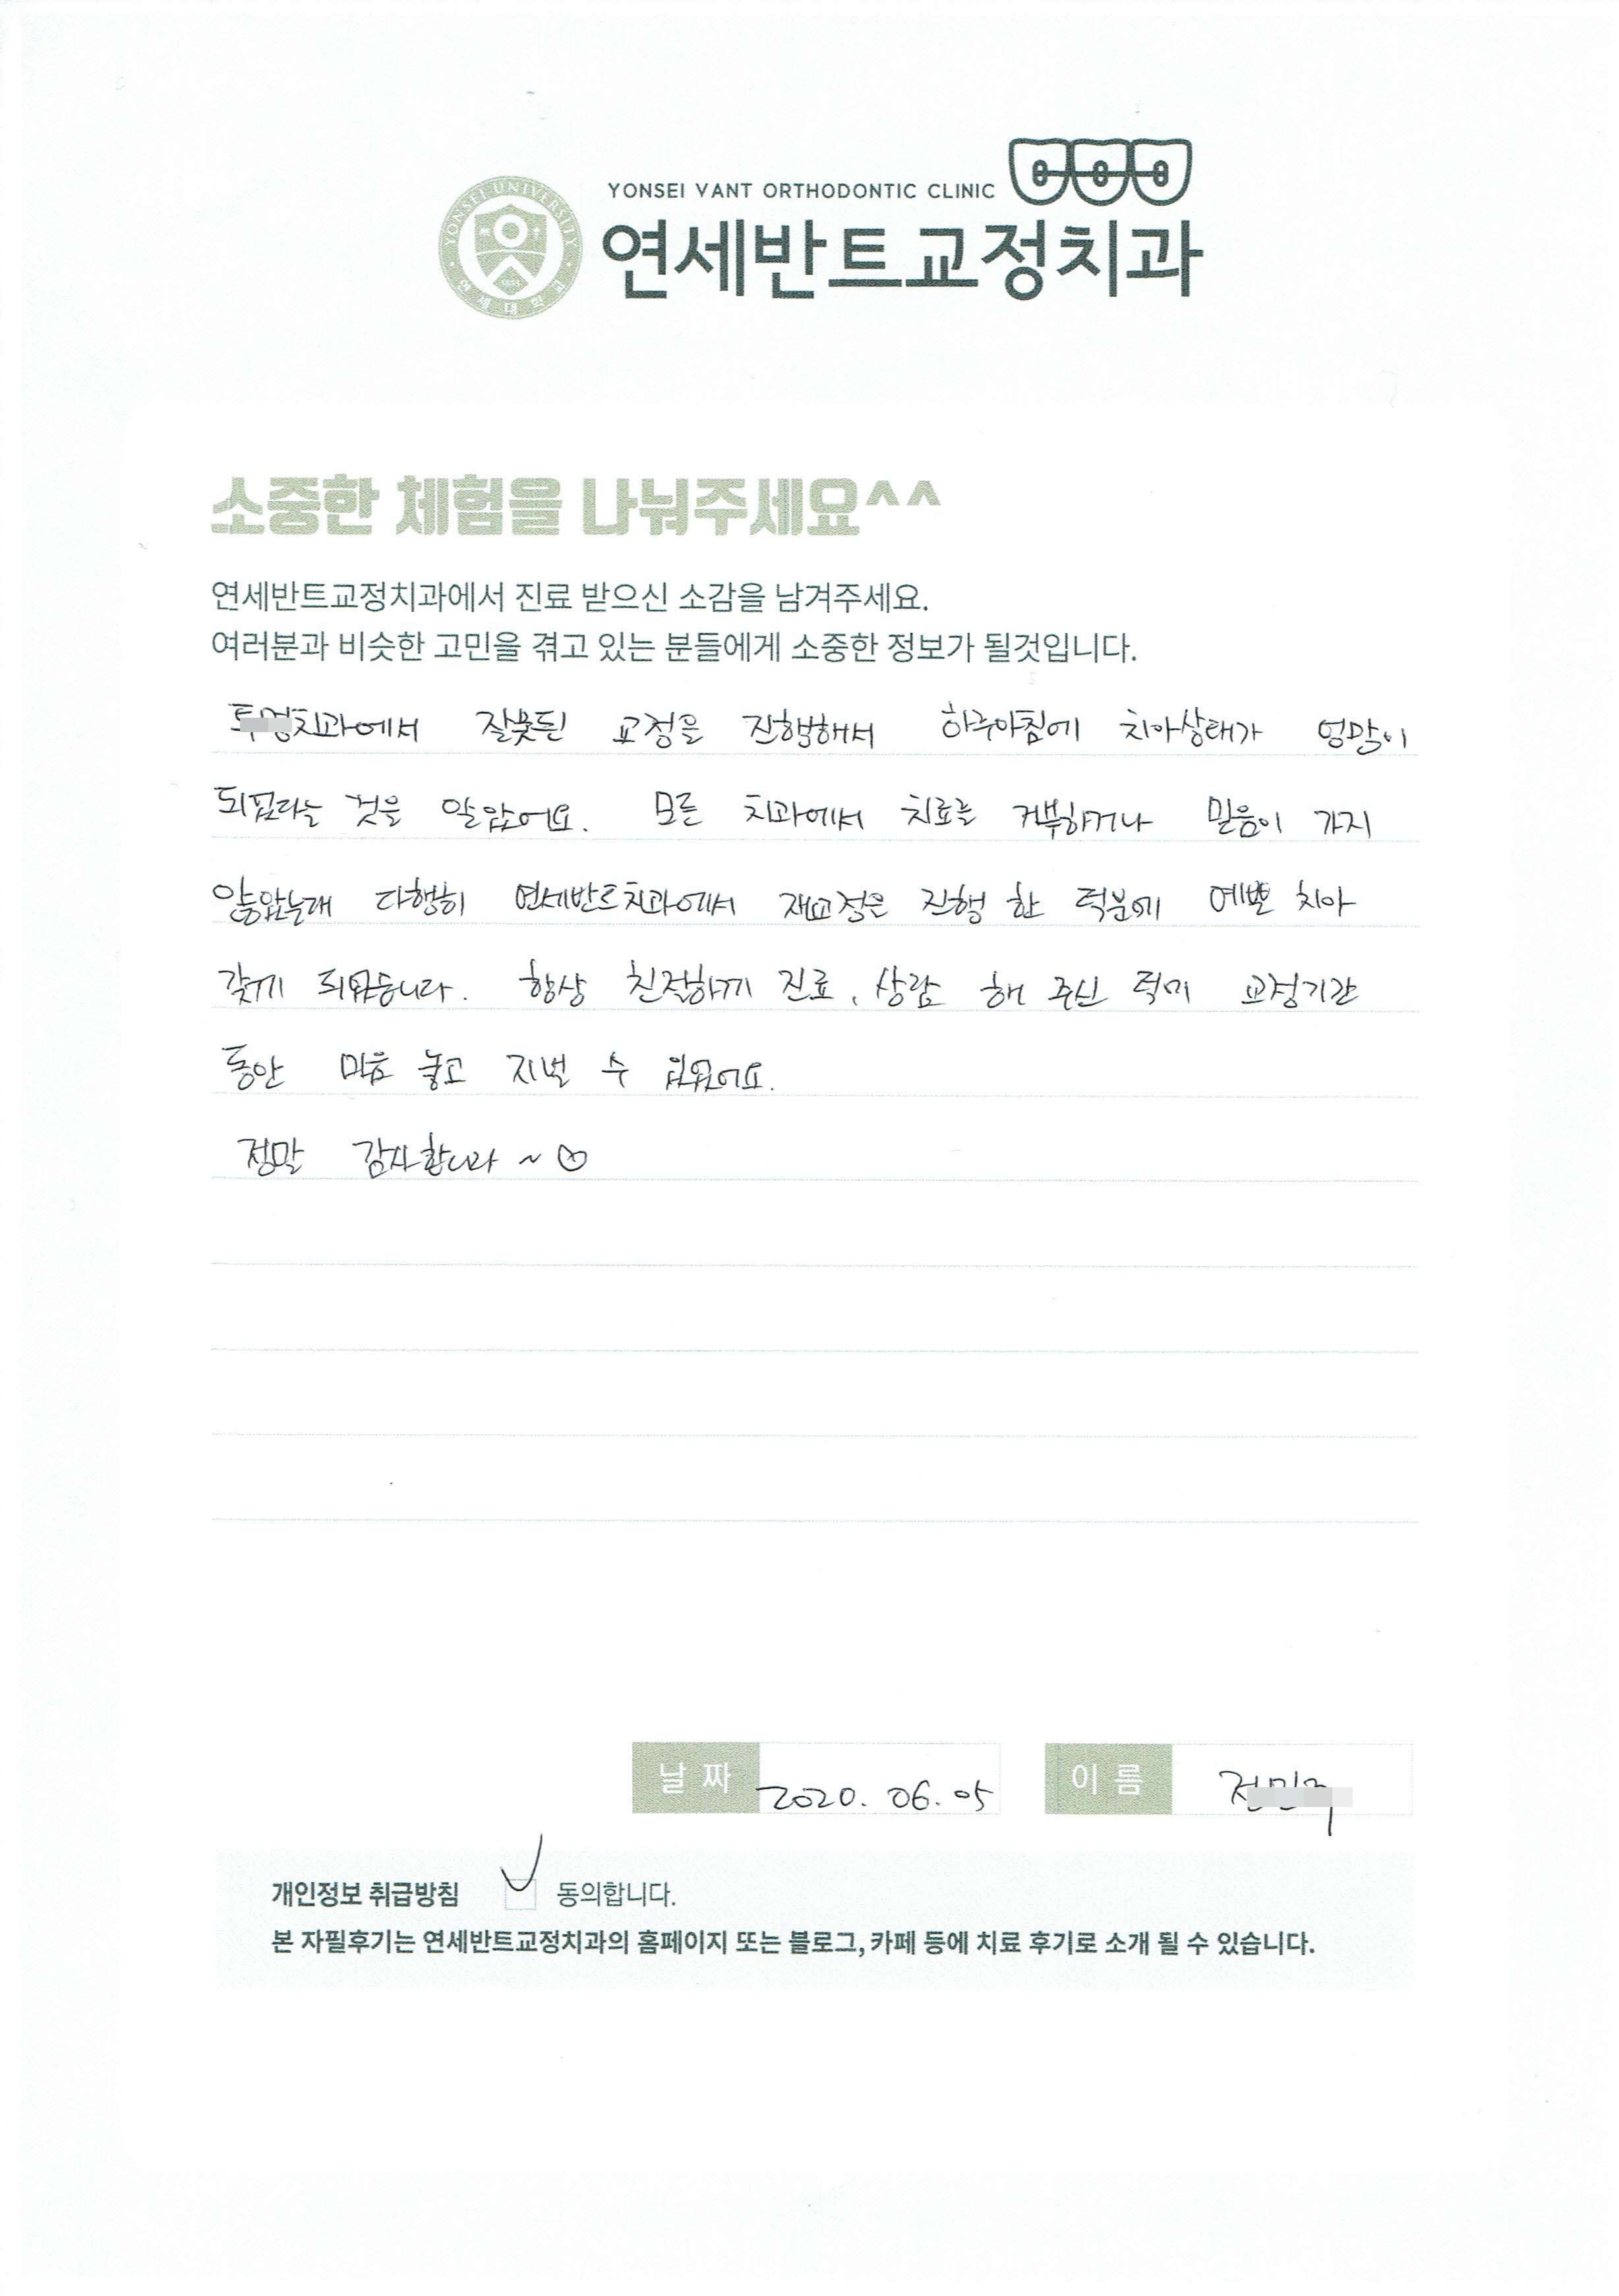 YONSEI UNIVERSITY
연세대학교
1885
YONSEI VANT ORTHODONTIC CLINIC
연세반트교정치과
소중한 체험을 나눠주세요^^
연세반트교정치과에서 진료 받으신 소감을 남겨주세요.
여러분과 비슷한 고민을 겪고 있는 분들에게 소중한 정보가 될것입니다.
치과에서 잘못된 교정을 진행해서 하루아침에 치아상태가 엉망이
되었다는 것을 알았어요. 모든 치과에서 치료를 거부하거나 믿음이 가지
않았는데 다행히 연세반트치과에서 재교정을 진행 한 덕분에 예쁜 치아
갖게 되었습니다. 항상 친절하게 진료, 상담 해 주신 덕에 교정기간
동안 마음 놓고 지낼 수 있었어요.
정말 감사합니다 ~ ♡
날짜 2020. 06. 05 이름
개인정보 취급방침 동의합니다.
본 자필후기는 연세반트교정치과의 홈페이지 또는 블로그, 카페 등에 치료 후기로 소개 될 수 있습니다.